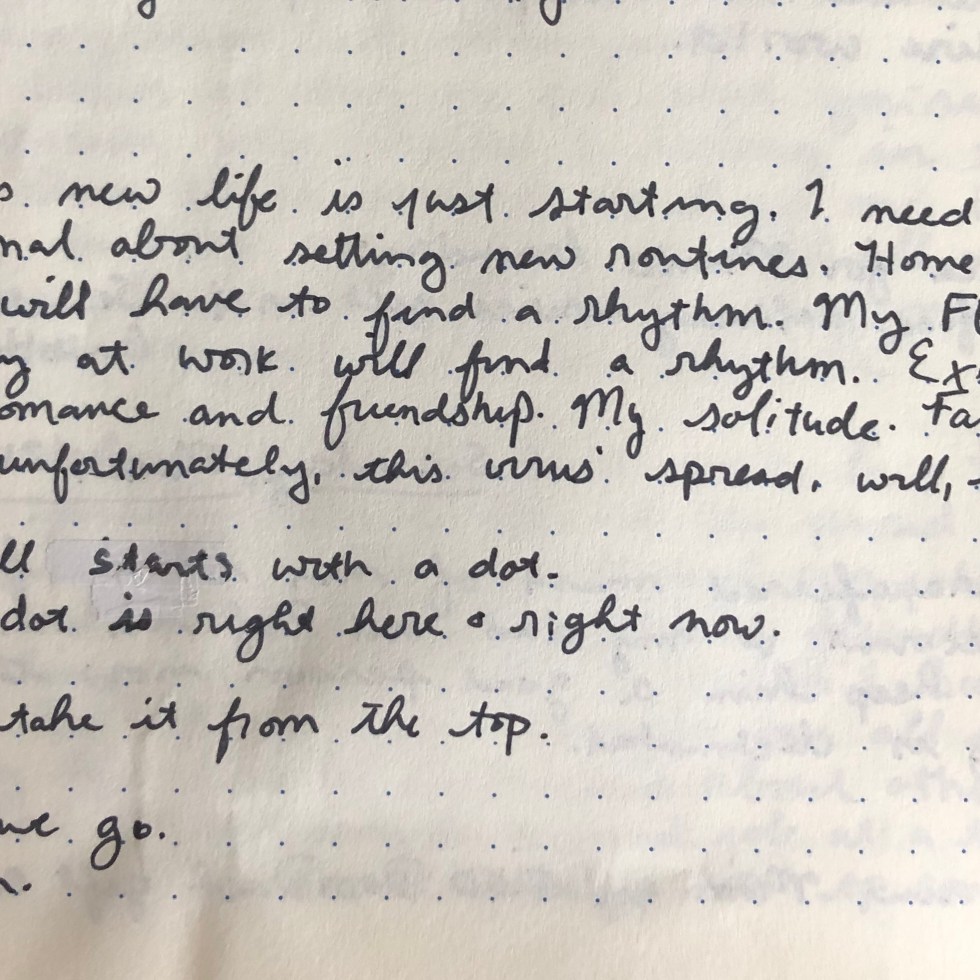 new life is just starting. I need
about setting new routines. Home
will have to find a rhythm. My
at work will find a rhythm.
and friendship. My solitude.
unfortunately, this virus' spread. will,
starts with a dot.
dot is right here & right now.
take it from the top.
we go.